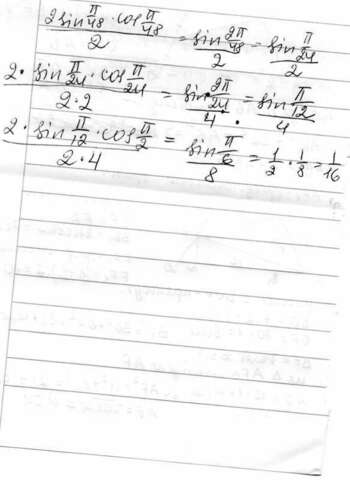 2 sin π/48 · cos π/48 / 2 = sin 2π/48 / 2 = sin π/24 / 2
2 · sin π/24 · cos π/24 / 2·2 = sin 2π/24 / 4 = sin π/12 / 4
2 · sin π/12 · cos π/2 / 2·4 = sin π/6 / 8 = 1/2 · 1/8 = 1/16